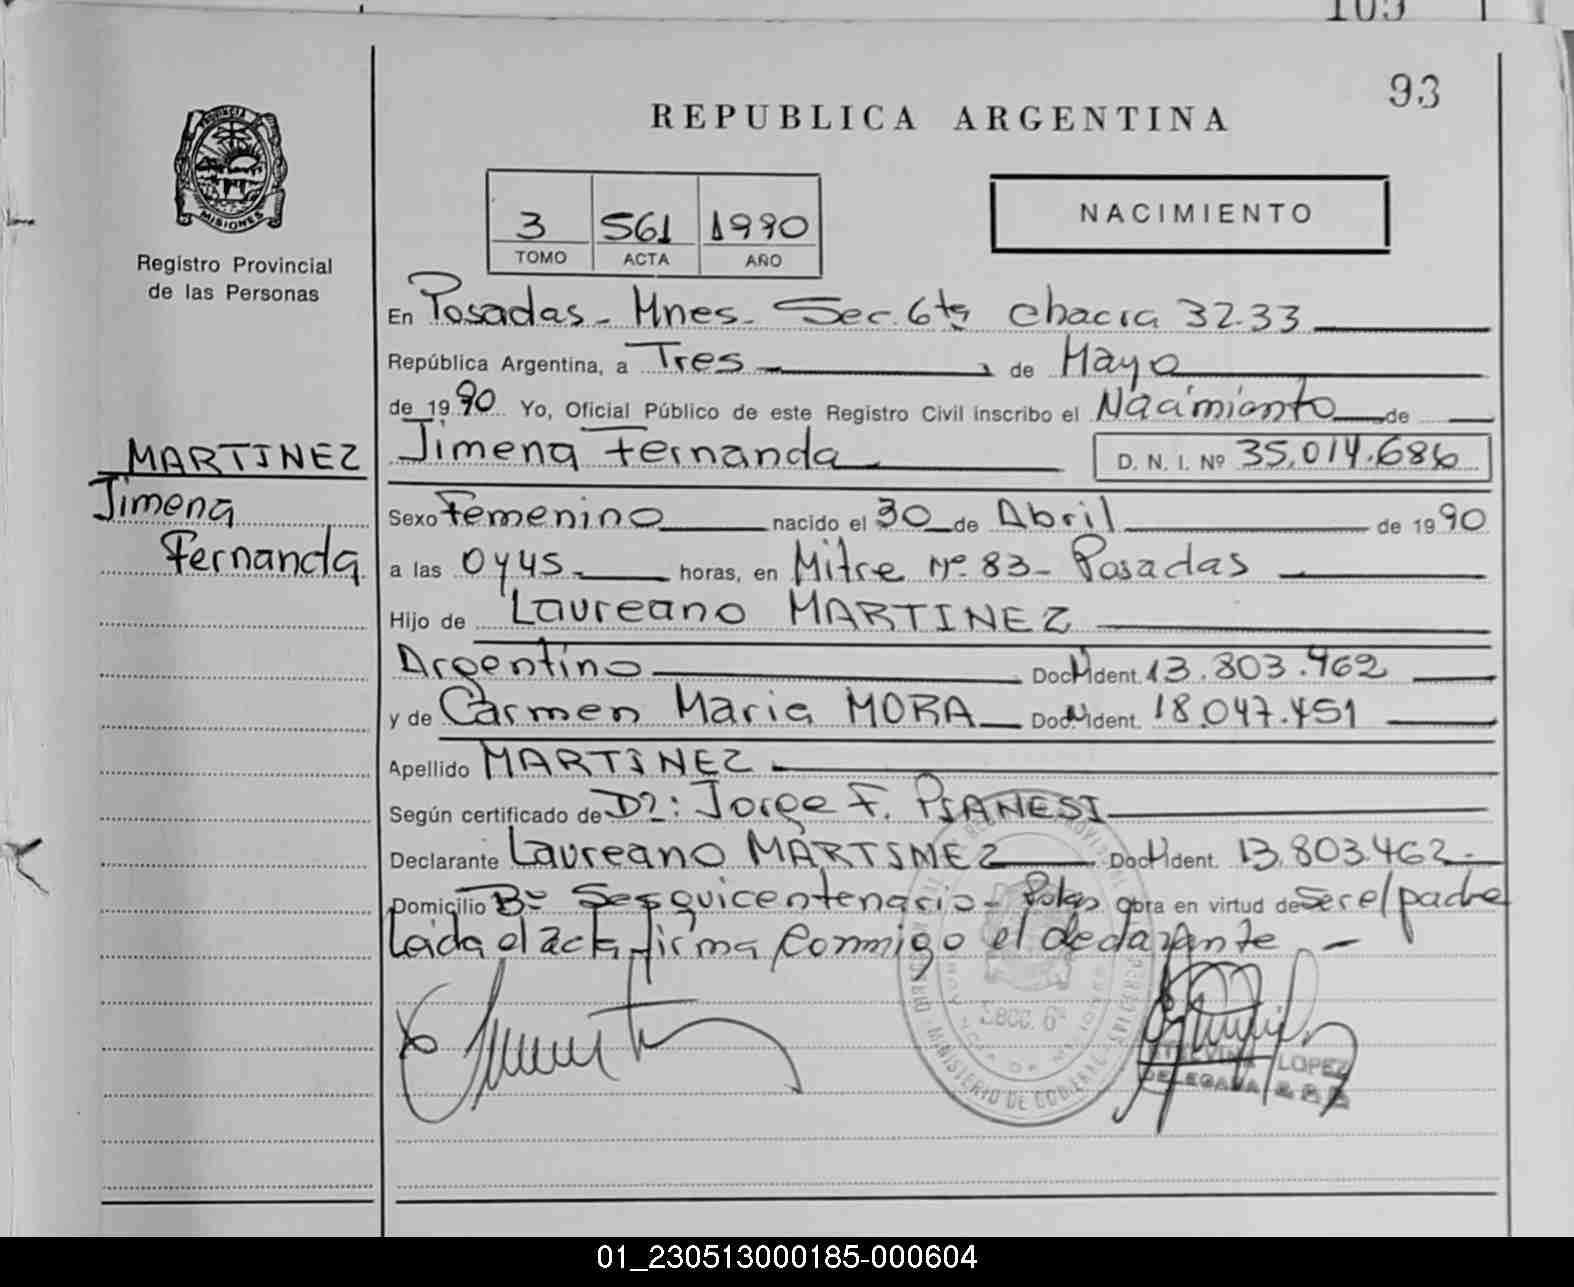 103
93
REPUBLICA ARGENTINA
PROVINCIA
MISIONES
Registro Provincial
de las Personas
3 561 1990
TOMO ACTA AÑO
NACIMIENTO
En Posadas - Mnes - Sec. 6ta chacra 32-33
República Argentina, a Tres de Mayo
de 1990 Yo, Oficial Público de este Registro Civil inscribo el Nacimiento de
MARTINEZ
Jimena
Fernanda
Jimena Fernanda D. N. I. Nº 35.014.686
Sexo Femenino nacido el 30 de Abril de 1990
a las 0y45 horas, en Mitre Nº 83 - Posadas
Hijo de Laureano MARTINEZ
Argentino Doc. Ident. 13.803.462
y de Carmen Maria MORA Doc. Ident. 18.047.451
Apellido MARTINEZ
Según certificado de Dr: Jorge F. PIANESI
Declarante Laureano MARTINEZ Doc. Ident. 13.803.462
Domicilio Bº Sesquicentenario - Pdas obra en virtud de ser el padre
Leida el acta firma conmigo el declarante -
SECC. 6ª
MINISTERIO DE GOBIERNO
LOPEZ
DELEGADA
01_230513000185-000604